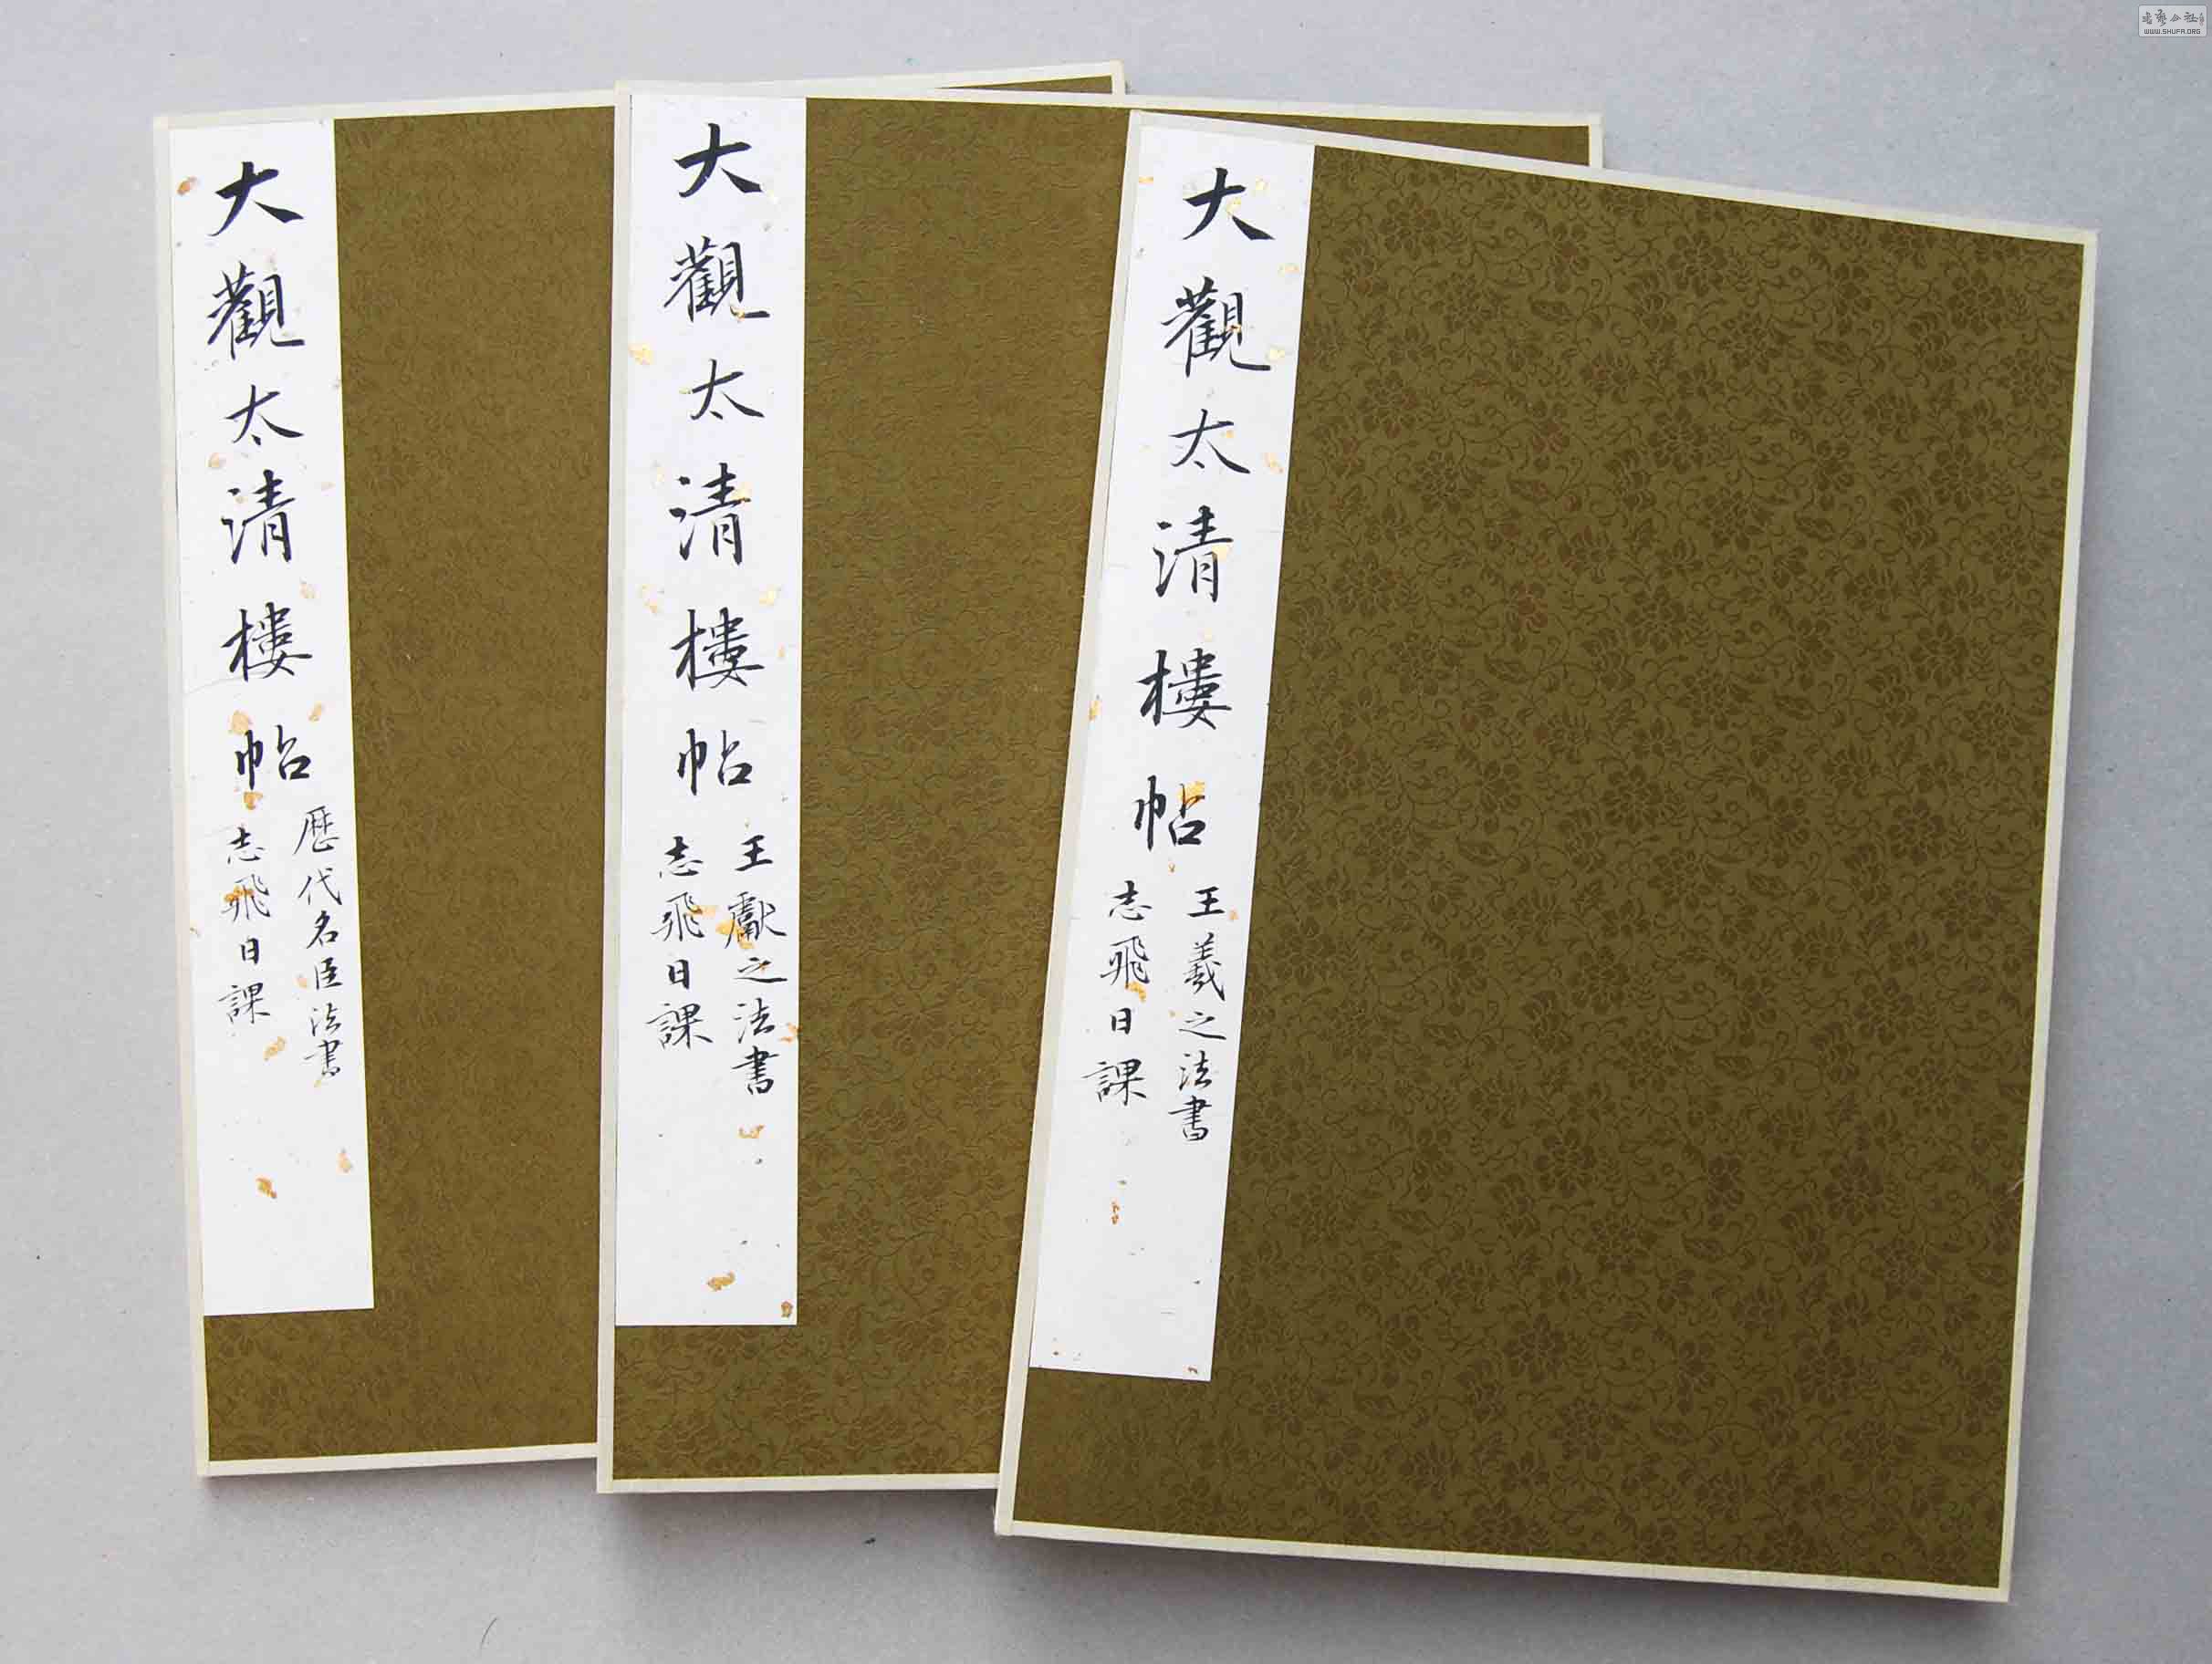 大觀太清樓帖
歷代名臣法書
志飛日課
大觀太清樓帖
王獻之法書
志飛日課
大觀太清樓帖
王羲之法書
志飛日課
WWW.SHUFA.ORG